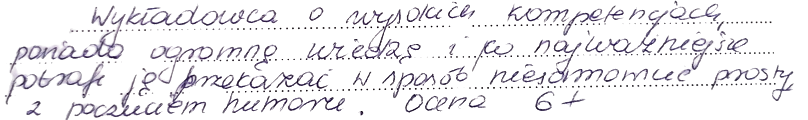 Wykładowca o wysokich kompetencjach,
posiada ogromną wiedzę i co najważniejsze
potrafi ją przekazać w sposób niesamowicie prosty
z poczuciem humoru. Ocena 6+